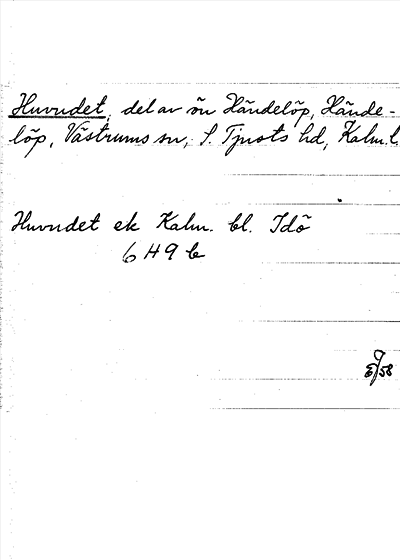 Huvudet, del av ön Händelöp, Hände-
löp, Västrums sn, S. Tjusts hd, Kalm. l.
Huvudet ek Kalm. bl. Idö
6 H 9 b
/58